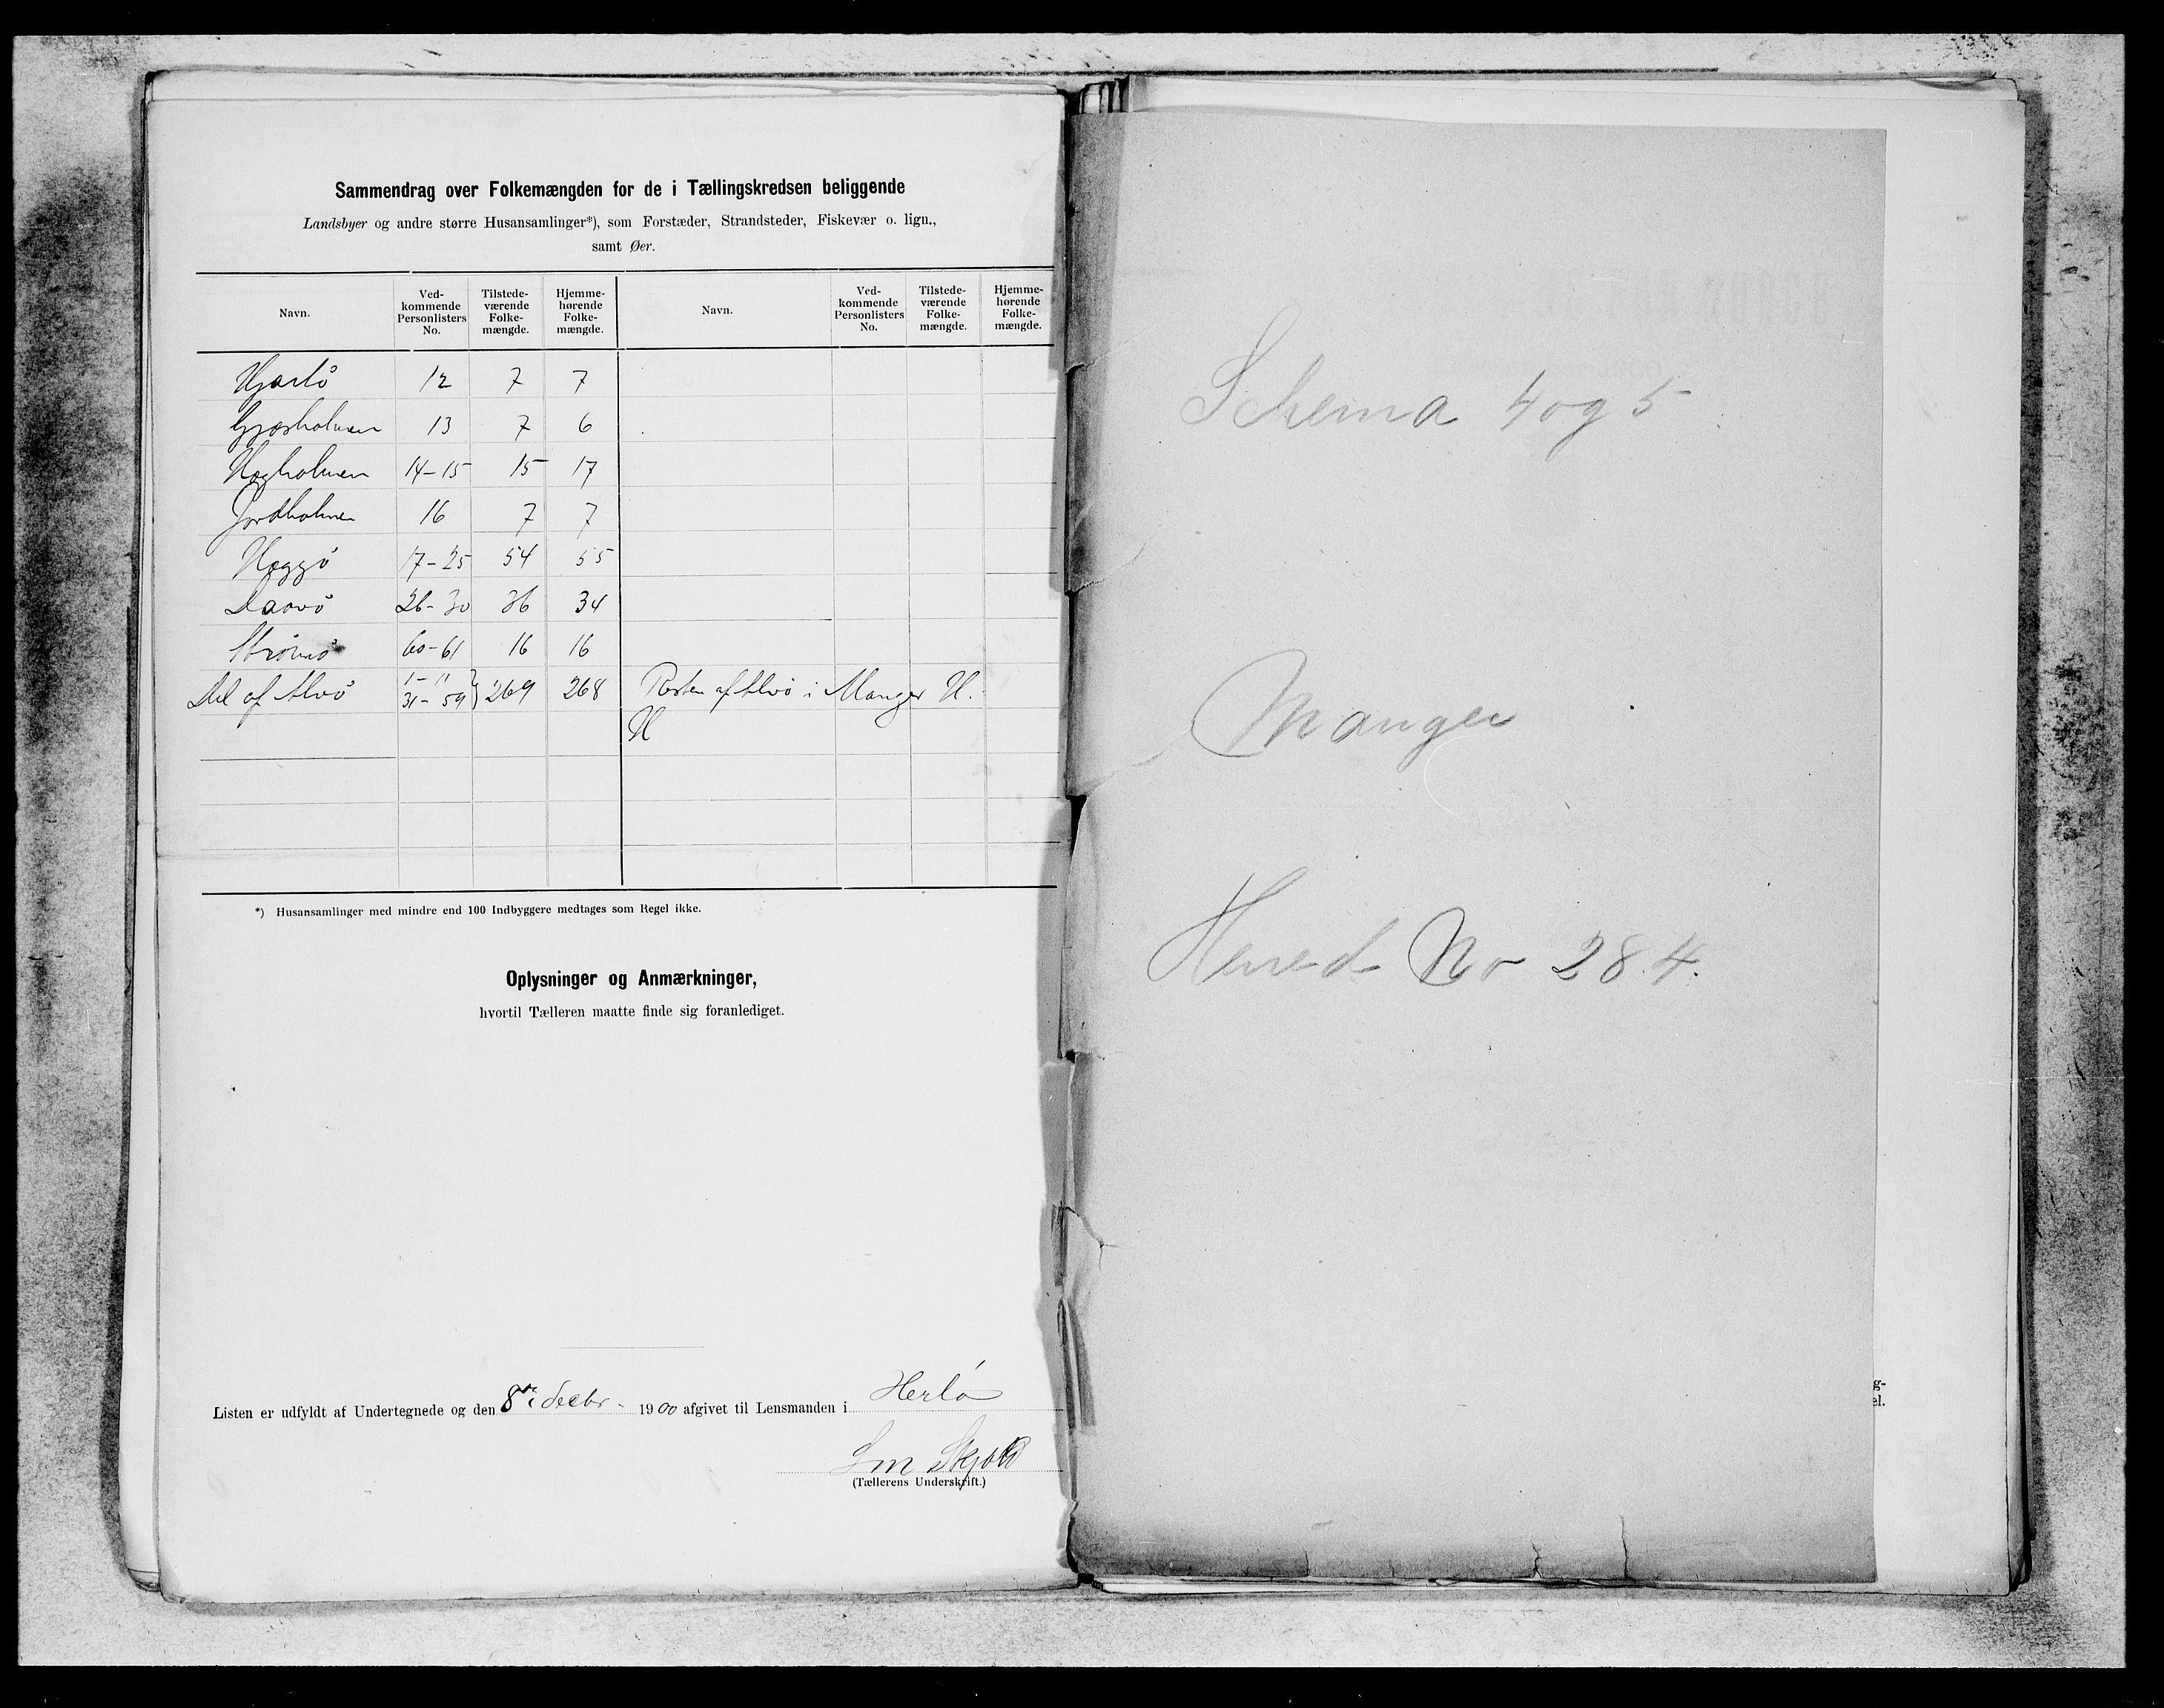 Sammendrag over Folkemængden for de i Tællingskredsen beliggende
Landsbyer og andre større Husansamlinger*), som Forstæder, Strandsteder, Fiskevær o. lign.,
samt Øer.
Navn. Ved-kommende Personlisters No. Tilstede-værende Folke-mængde. Hjemme-hørende Folke-mængde. Navn. Ved-kommende Personlisters No. Tilstede-værende Folke-mængde. Hjemme-hørende Folke-mængde.
12 7 7
13 7 6
14-15 15 17
16 7 7
17-25 54 55
26-30 36 34
60-61 16 16
Del af Alvö 1-11 31-59 } 269 268 Resten af Alvö i Manger H.
H
*) Husansamlinger med mindre end 100 Indbyggere medtages som Regel ikke.
Oplysninger og Anmærkninger,
hvortil Tælleren maatte finde sig foranlediget.
Listen er udfyldt af Undertegnede og den 8de decbr. 1900 afgivet til Lensmanden i Herlö
(Tællerens Underskrift.)
Schema 4 og 5
Manger
Herred No 284.
g-
el.